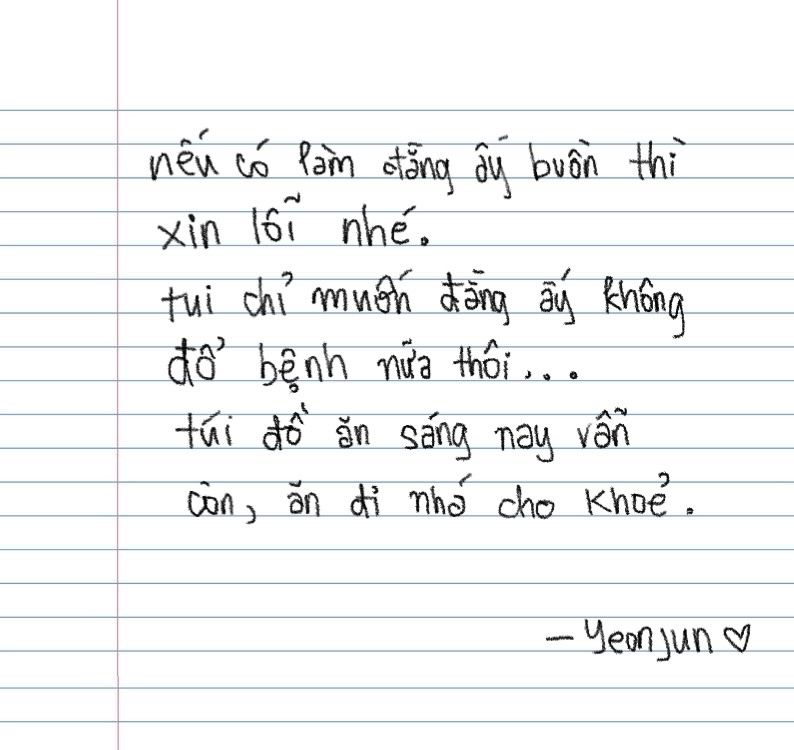 nếu có làm đằng ấy buồn thì
xin lỗi nhé.
tui chỉ muốn đằng ấy không
đổ bệnh nữa thôi...
túi đồ ăn sáng nay vẫn
còn, ăn đi nhớ cho khoẻ.
— Yeonjun ♡